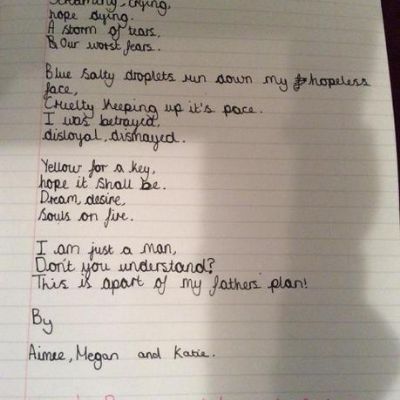 Screaming, crying,
hope dying.
A storm of tears,
& Our worst fears.
Blue salty droplets run down my hopeless
face,
Cruelty keeping up it's pace.
I was betrayed,
disloyal, dismayed.
Yellow for a key,
hope it shall be.
Dream, desire,
souls on fire.
I am just a man,
Don't you understand?
This is apart of my fathers plan!
By
Aimee, Megan and Katie.